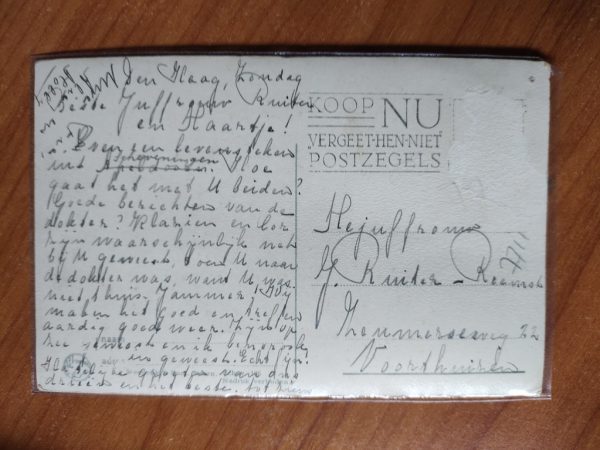 Den Haag, Zondag
Beste Juffrouw Ruiter
en Kaartje!
Even een levensteken
uit Scheveningen. Hoe
gaat het met U beiden?
Goede berichten van de
dokter? Klazien en Cor
zijn waarschijnlijk net
bij U geweest, toen U naar
de dokter was, want U was
niet thuis. Jammer! Wij
maken het goed en treffen
aardig goed weer. Zijn op
zee geweest en ik
in geweest. Echt fijn!
Hartelijke groeten van ons
drieën en het beste. tot ziens
KOOP NU
VERGEET-HEN-NIET
POSTZEGELS
Mejuffrouw
J. Ruiter -
Zeumerseweg 22
Voorthuizen
7711
naam
Nadruk verboden